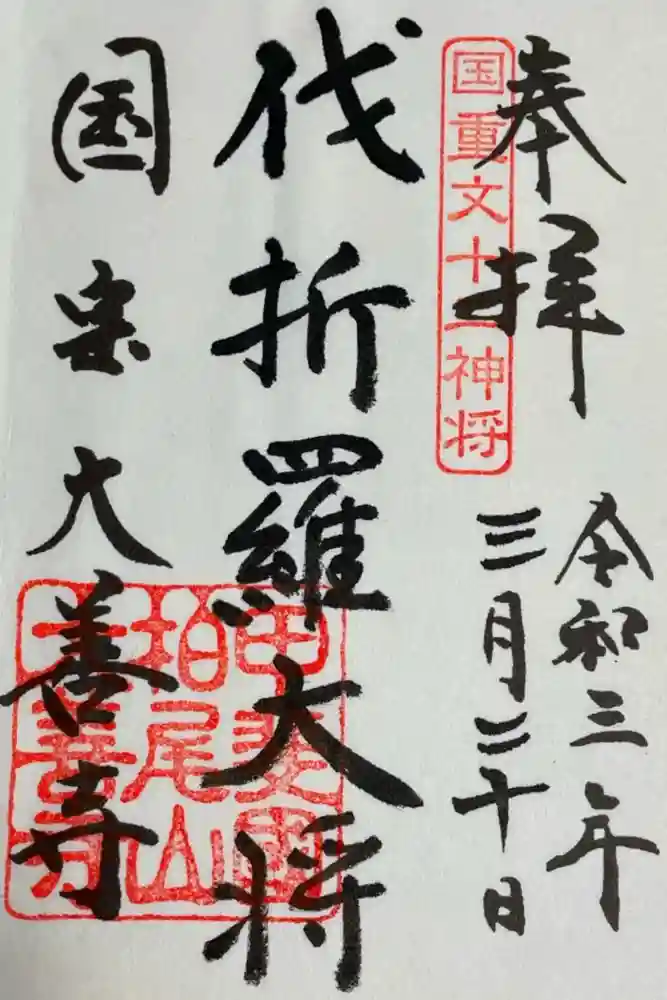 奉拝
国重文十二神将
令和三年
三月二十日
伐折羅大将
国宝大善寺
甲斐国
柏尾山
大善寺